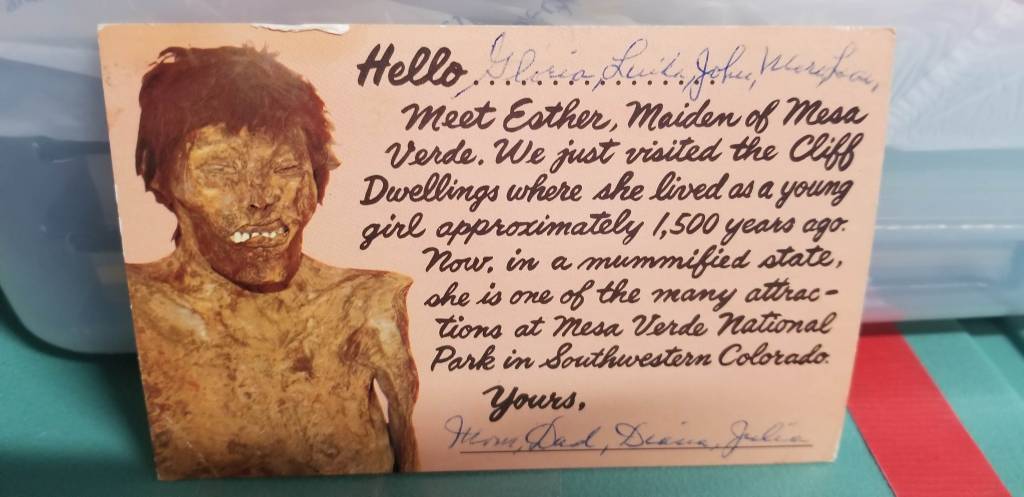 Hello Gloria, Luida, John, MariLou,
Meet Esther, Maiden of Mesa
Verde. We just visited the Cliff
Dwellings where she lived as a young
girl approximately 1,500 years ago.
Now, in a mummified state,
she is one of the many attrac-
tions at Mesa Verde National
Park in Southwestern Colorado.
Yours,
Mom, Dad, Diana, Julia